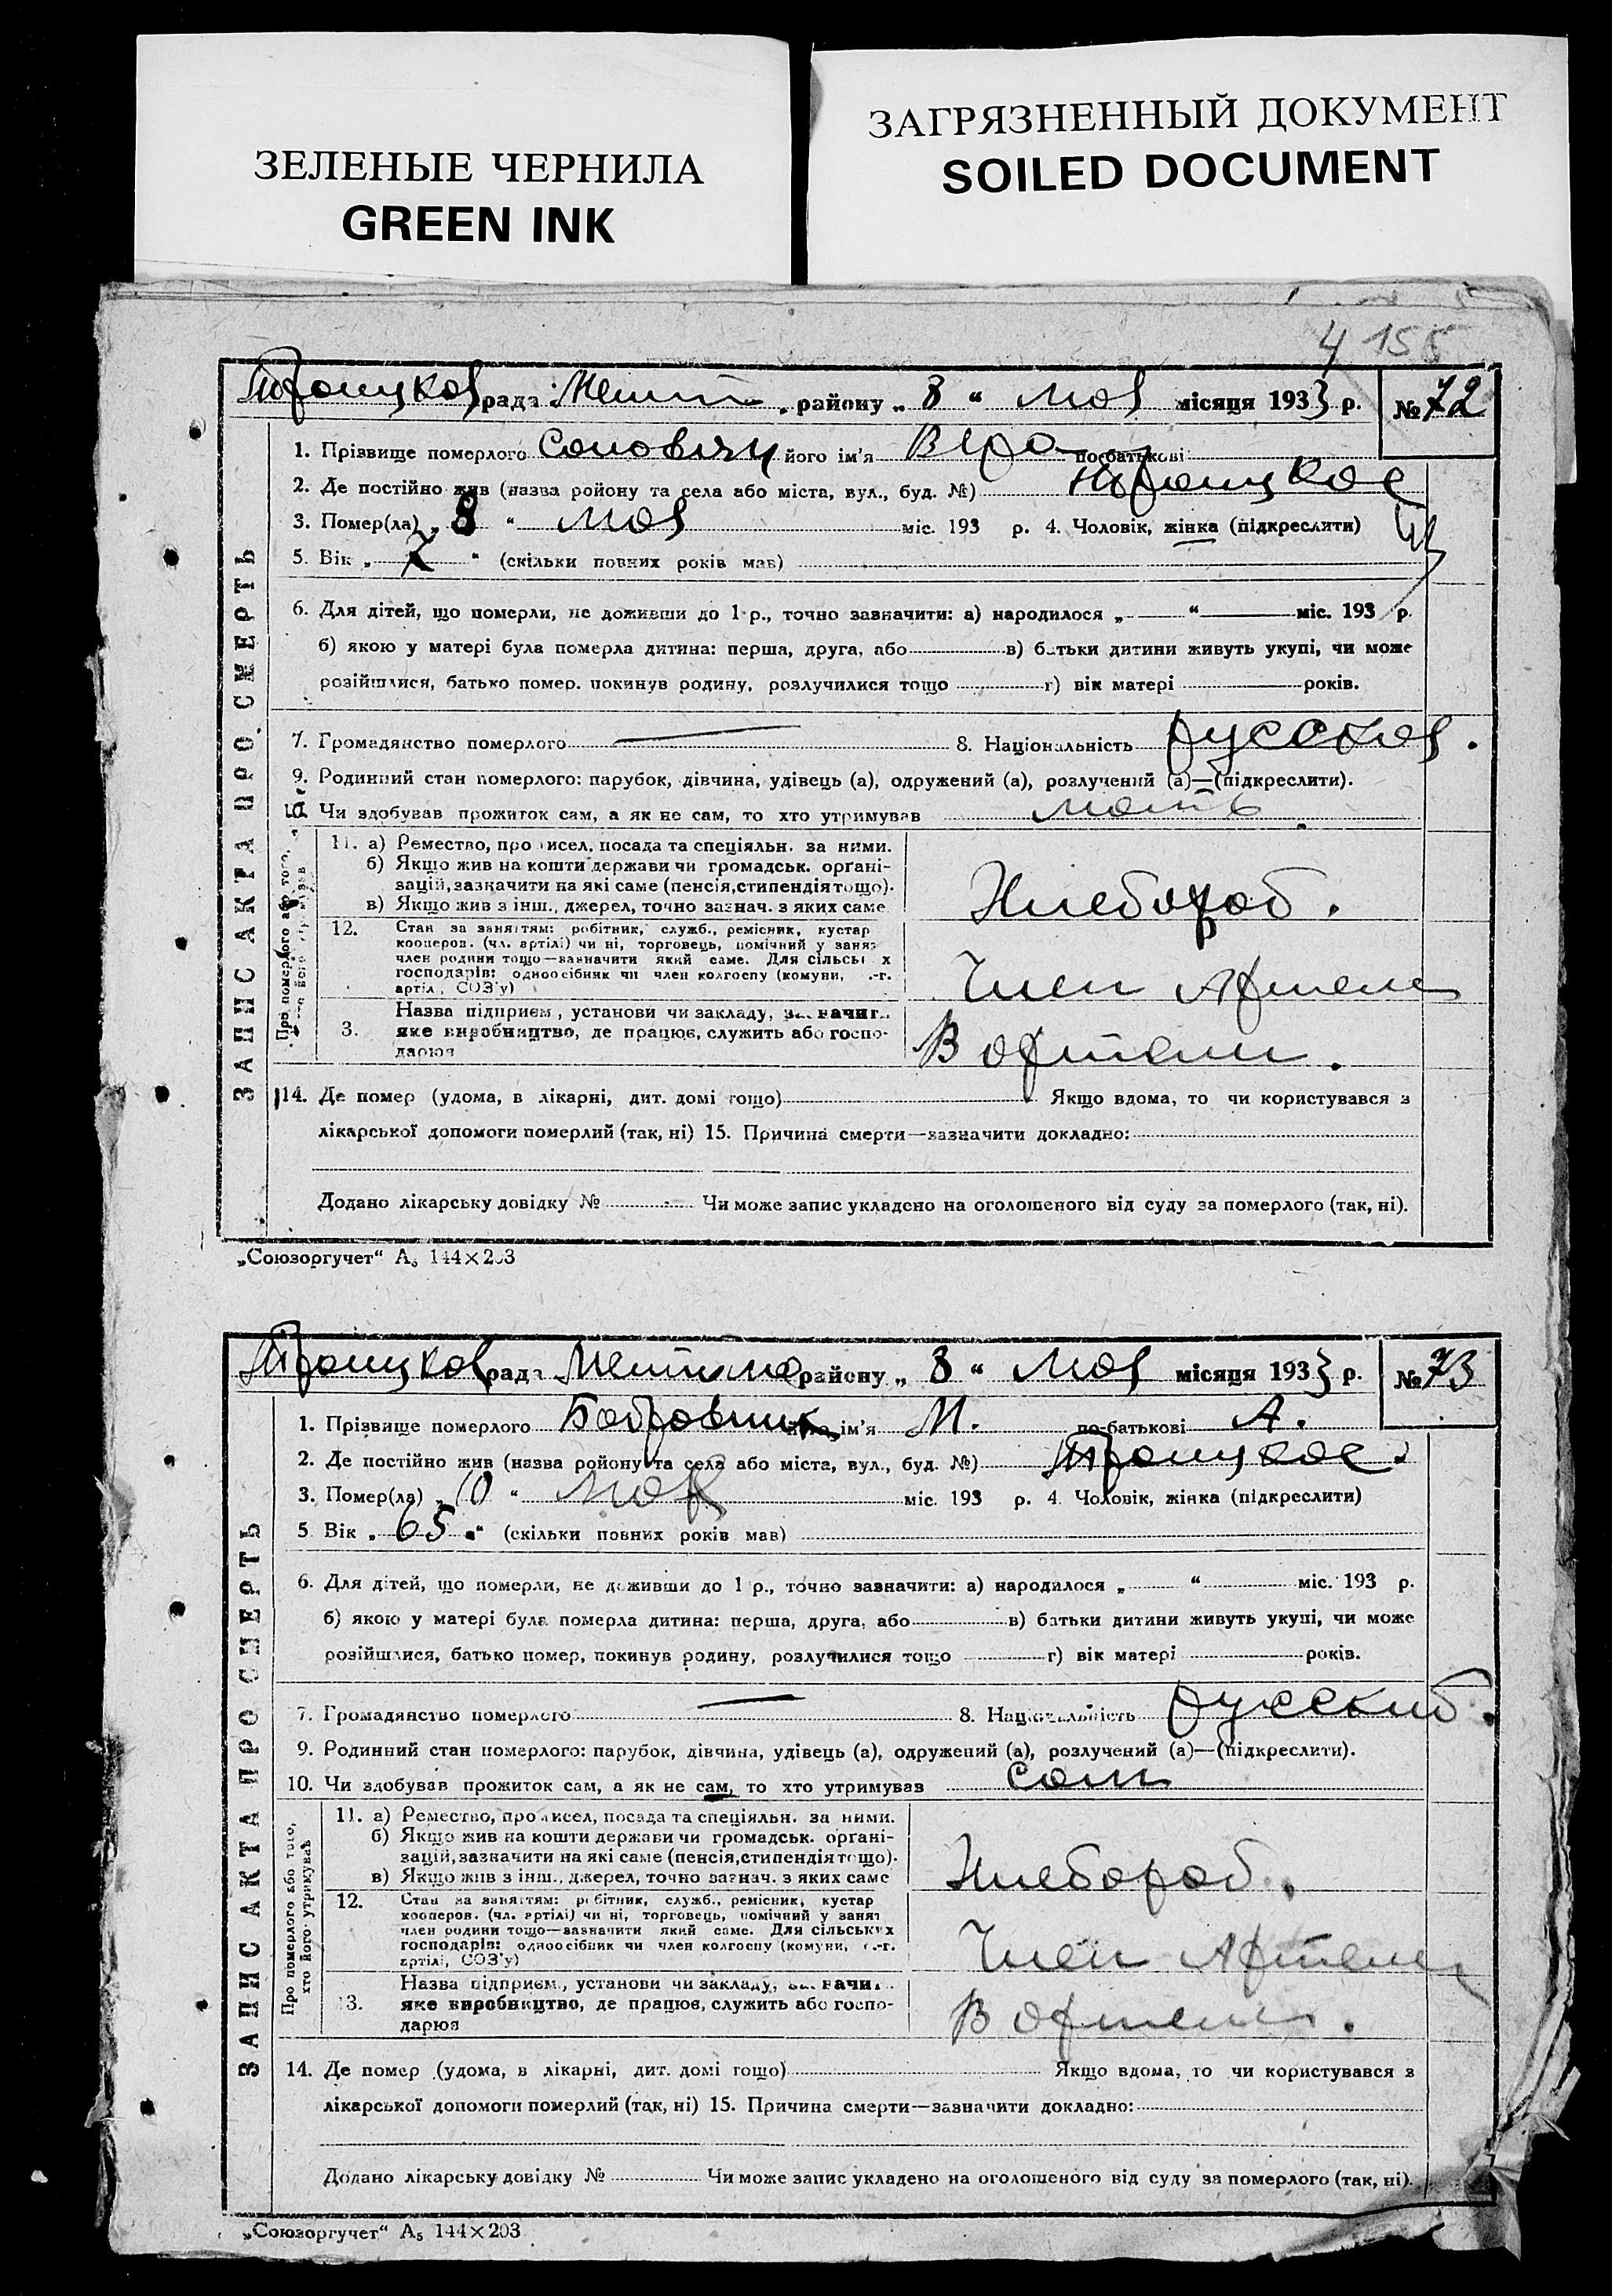 ЗЕЛЕНЫЕ ЧЕРНИЛА
GREEN INK
ЗАГРЯЗНЕННЫЙ ДОКУМЕНТ
SOILED DOCUMENT
4 155
ЗАПИС АКТА ПРО СМЕРТЬ
Троицкая рада районy „ 8 “ мая місяця 1933 р. № 72
1. Прізвище померлого його ім'я Вера по-батькові
2. Де постійно жив (назва ройону та села або міста, вул., буд. №) Троицкое
3. Помер(ла) „ 8 “ мая міс. 193 р. 4. Чоловік, жінка (підкреслити)
5. Вік „ “ (скільки повних років мав)
6. Для дітей, що померли, не доживши до 1 р., точно зазначити: а) народилося „ “ міс. 193 р.
б) якою у матері була померла дитина: перша, друга, або в) батьки дитини живуть укупі, чи може
розійшлися, батько помер, покинув родину, розлучилися тощо г) вік матері років.
7. Громадянство померлого — 8. Національність русская.
9. Родинний стан померлого: парубок, дівчина, удівець (а), одружений (а), розлучений (а)—(підкреслити).
Чи здобував прожиток сам, а як не сам, то хто утримував мать
Про померлого або того, хто його утримував
11. а) Ремество, промисел, посада та спеціяльн. за ними.
б) Якщо жив на кошти держави чи громадськ. органі-
зацій, зазначити на які саме (пенсія, стипендія тощо).
в) Якщо жив з інш., джерел, точно зазнач. з яких саме
Хлебороб.
12. Стан за заняттям: робітник, служб., ремісник, кустар
кооперов. (чл. артілі) чи ні, торговець, помічний у занят
член родини тощо—зазначити який саме. Для сільськ х
господарів: одноосібник чи член колгоспу (комуни, с.-г.
артіл , СОЗ'у)
Член Артели
3. Назва підприєм , установи чи закладу, зазначит
яке виробництво, де працює, служить або госпо-
дарює
В артели.
14. Де помер (удома, в лікарні, дит. домі тощо) Якщо вдома, то чи користувався з
лікарської допомоги померлий (так, ні) 15. Причина смерти—зазначити докладно:
Додано лікарську довідку № Чи може запис укладено на оголошеного від суду за померлого (так, ні).
„Союзоргучет“ А5 144×203
ЗАПИС АКТА ПРО СМЕРТЬ
Троицкая рада району „ 8 “ мая місяця 1933 р. № 73
1. Прізвище померлого Бобровник його ім'я М. по-батькові А.
2. Де постійно жив (назва ройону та села або міста, вул., буд. №) Троицкое
3. Помер(ла) „ 10 “ мая міс. 193 р. 4 Чоловік, жінка (підкреслити)
5 Вік „ 65 “ (скільки повних років мав)
6. Для дітей, що померли, не доживши до 1 р., точно зазначити: а) народилося „ “ міс. 193 р.
б) якою у матері була померла дитина: перша, друга, або в) батьки дитини живуть укупі, чи може
розійшлися, батько помер, покинув родину, розлучилися тощо г) вік матері років.
7. Громадянство померлого — 8. Національність русский.
9. Родинний стан померлого: парубок, дівчина, удівець (а), одружений (а), розлучений (а)—(підкреслити).
10. Чи здобував прожиток сам, а як не сам, то хто утримував сам
Про померлого або того, хто його утримував
11. а) Ремество, промисел, посада та спеціяльн. за ними.
б) Якщо жив на кошти держави чи громадськ. органі-
зацій, зазначити на які саме (пенсія, стипендія тощо).
в) Якщо жив з інш., джерел, точно зазнач. з яких саме
Хлебороб.
12. Стан за заняттям: робітник, служб., ремісник, кустар
кооперов. (чл. артілі) чи ні, торговець, помічний у занят
член родини тощо—зазначити який саме. Для сільських
господарів: одноосібник чи член колгоспу (комуни, с.-г.
артілі, СОЗ'у)
Член Артели
3. Назва підприєм., установи чи закладу, зазначи
яке виробництво, де працює, служить або госпо-
дарює
В артели.
14. Де помер (удома, в лікарні, дит. домі тощо) Якщо вдома, то чи користувався з
лікарської допомоги померлий (так, ні) 15. Причина смерти—зазначити докладно:
Додано лікарську довідку № Чи може запис укладено на оголошеного від суду за померлого (так, ні).
„Союзоргучет“ А5 144×203